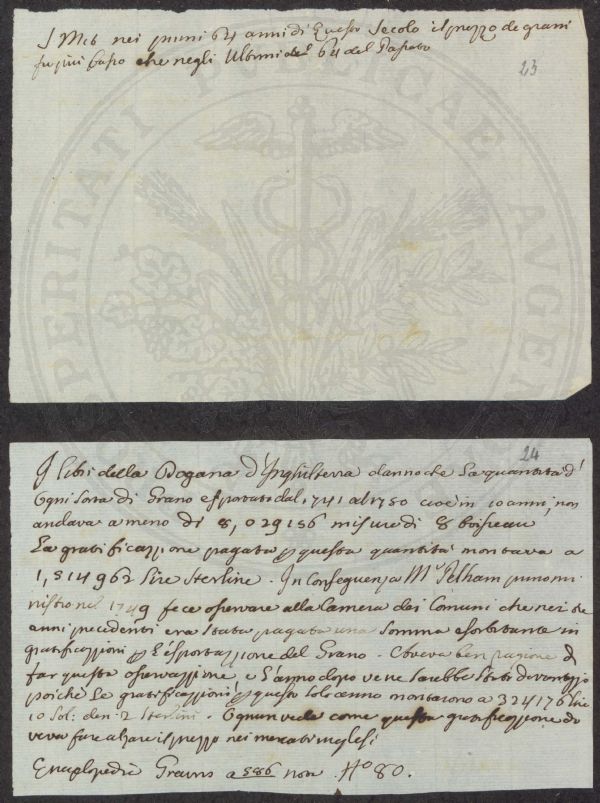 nei primi 64 anni di Questo Secolo il prezzo de grani
fu piu basso che negli Ultimi del 64 del Passato
23
24
I libri della Dogana d'Inghilterra danno che La quantità d'
Ogni Sorta di Grano esportato dal 1741 al 1750 cioè in 10 anni, non
andava a meno di 8,029156 misure di 8 boiseau
La gratificazzione pagata questa quantità montava a
1,514962 lire Sterline. In Conseguenza Mr Pelham primo mi
nistro nel 1749 fece osservare alla Camera dei Comuni che nei tre
anni precedenti era Stata pagata una Somma esorbitante in
gratificazzioni L'Esportazzione del Grano. Aveva ben ragione di
far questa osservazzione, e L'anno dopo ve ne Sarebbe
poiche Le gratificazzioni questo Sol anno montarono a 324176 lire
10 Sol: den: 2 Sterlini. Ognun vede come questa gratificazzione do
veva fare alzare il prezzo nei mercati inglesi
Enciclopedia Grains a 586 non. Ho 80.
PUBLICAE
AUGEN
SPERITATI